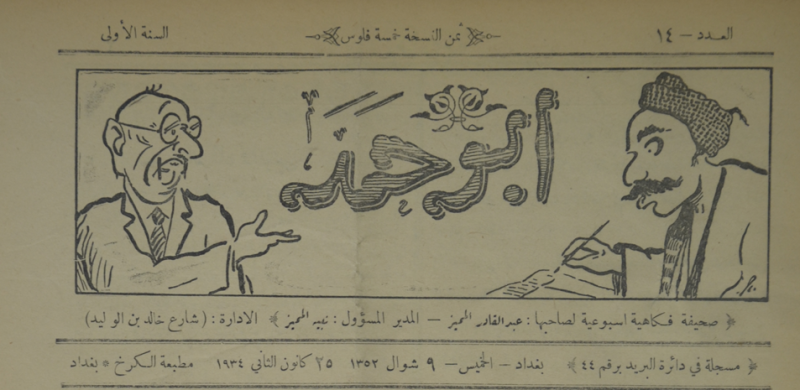 العدد — ١٤
ثمن النسخة خمسة فلوس
السنة الأولى
أبو حمد
صحيفة فكاهية اسبوعية لصاحبها : عبدالقادر المميز — المدير المسؤول : نهير المميز الادارة : (شارع خالد بن الوليد)
مسجلة في دائرة البريد برقم ٤٤ بغداد — الخميس — ٩ شوال ١٣٥٢ ٢٥ كانون الثاني ١٩٣٤ مطبعة الكرخ * بغداد